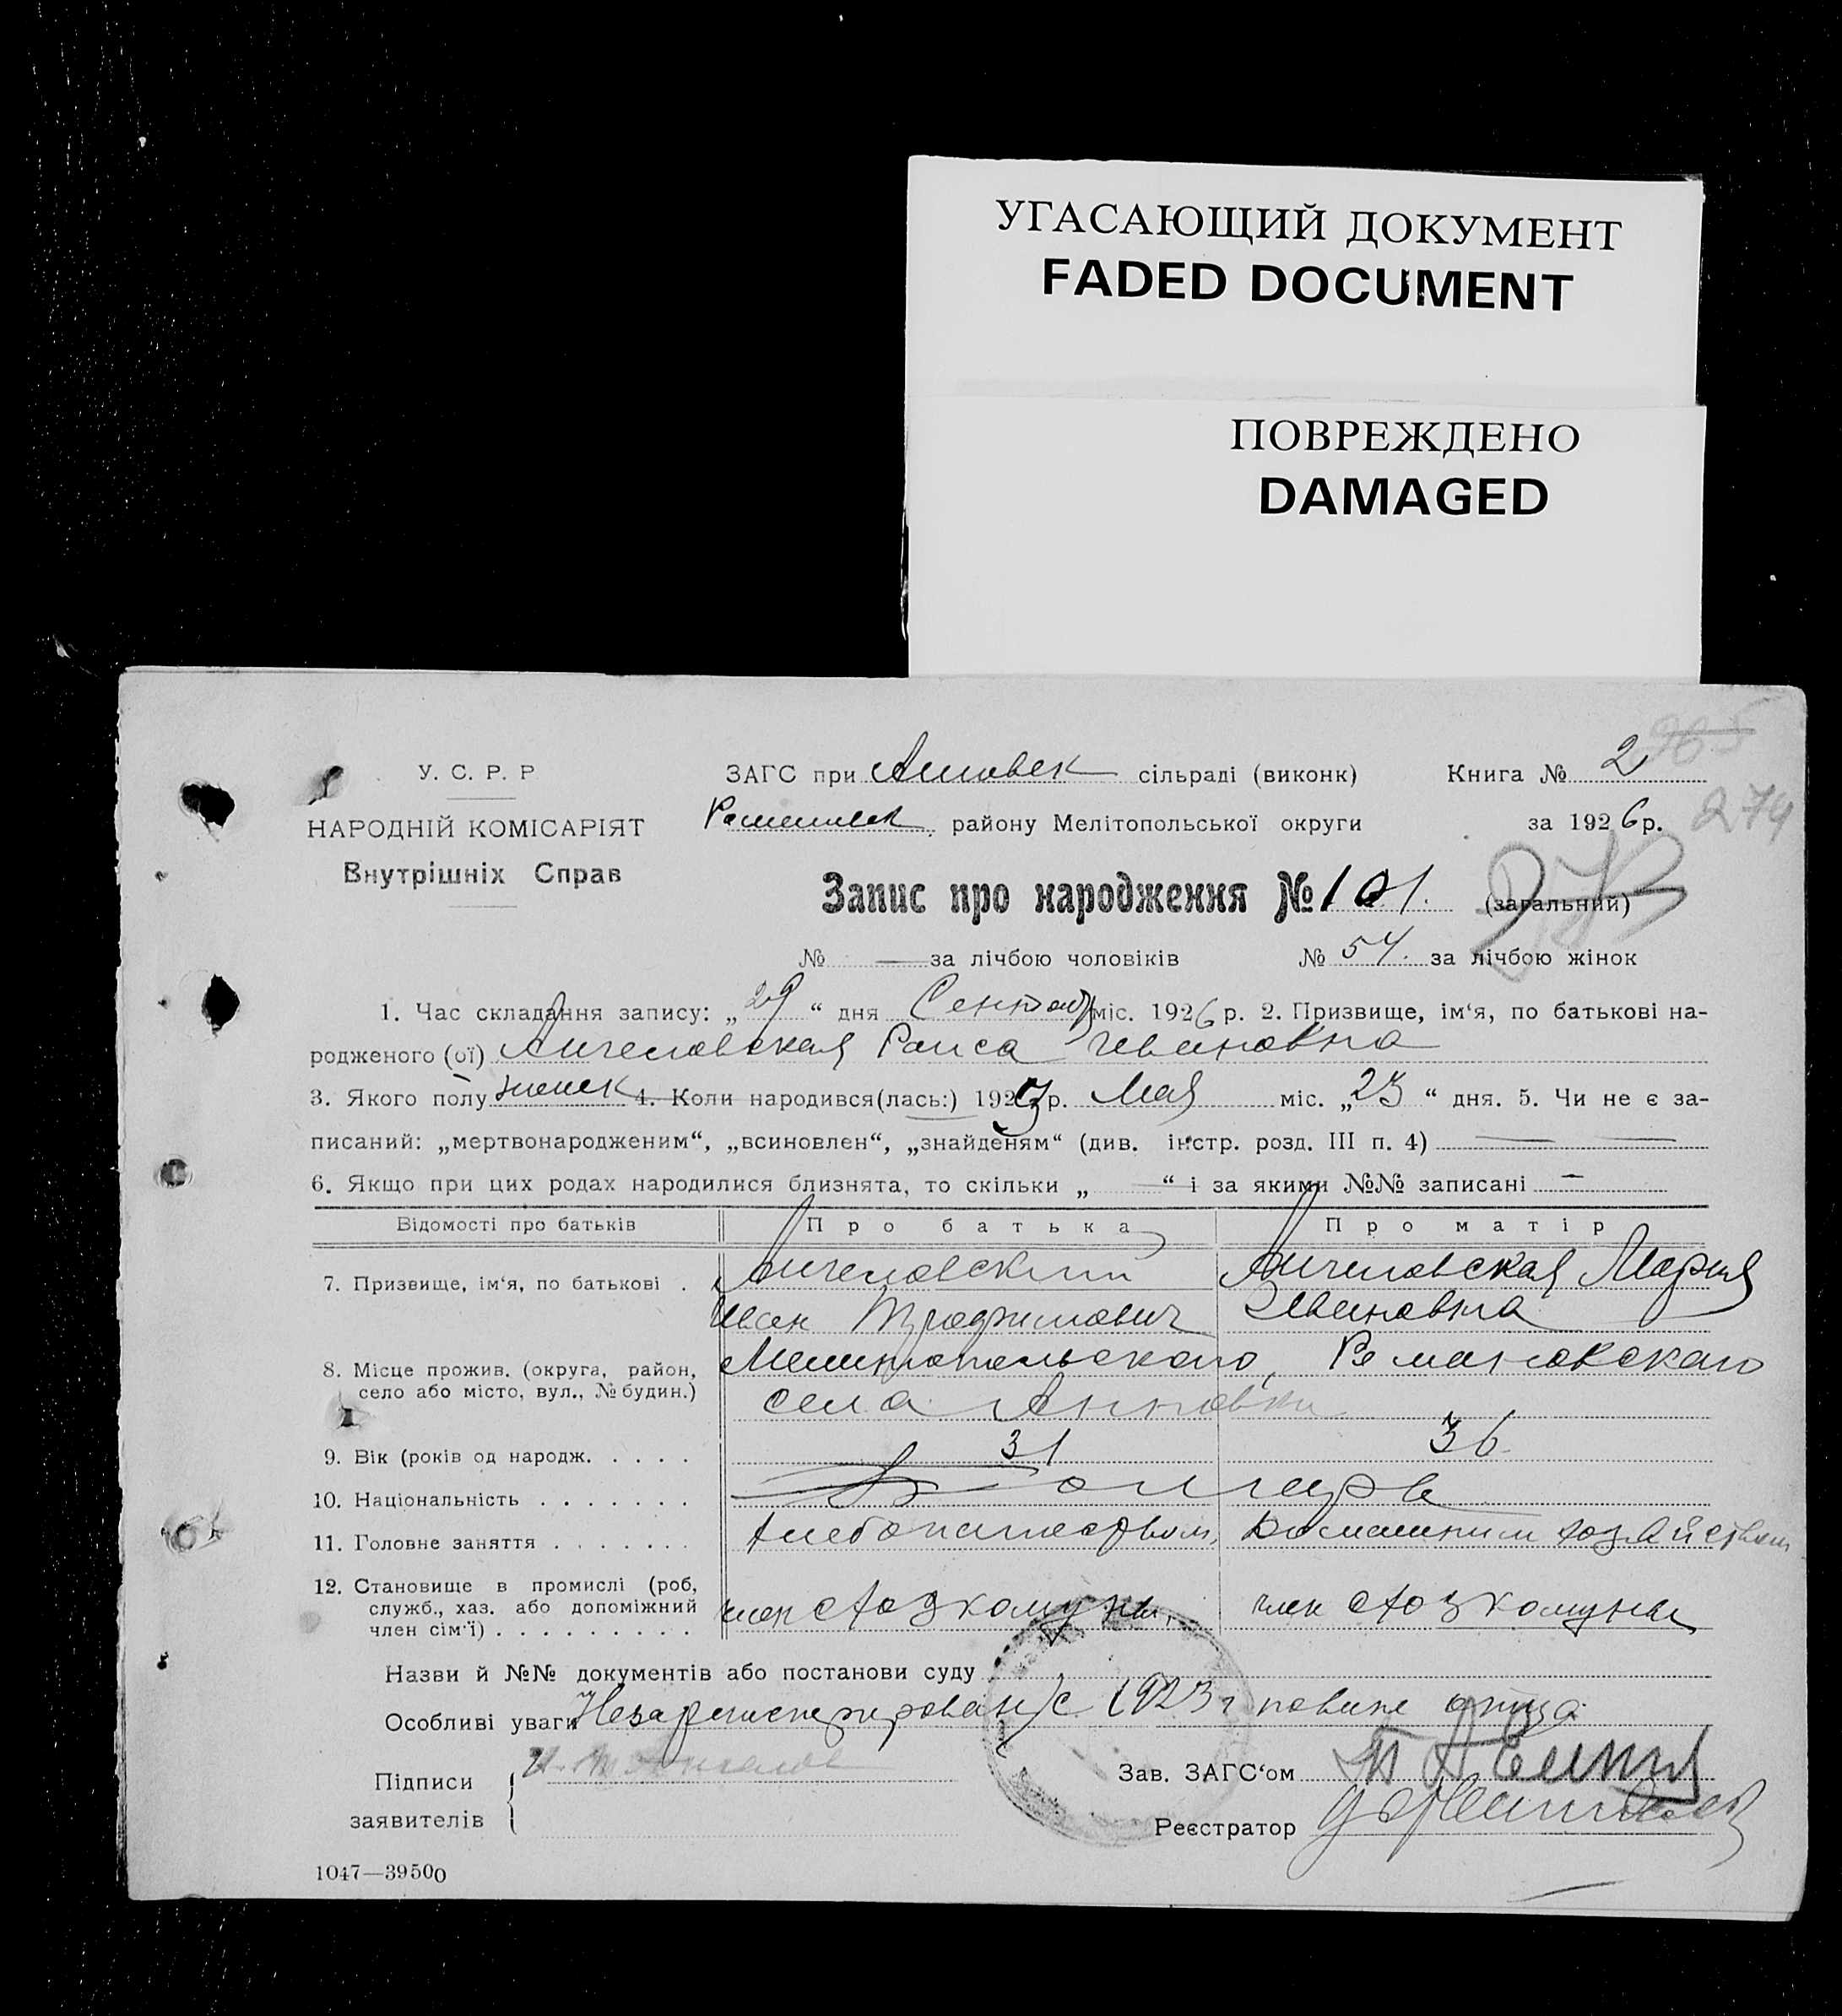 УГАСАЮЩИЙ ДОКУМЕНТ
FADED DOCUMENT
ПОВРЕЖДЕНО
DAMAGED
У. С. Р. Р
НАРОДНІЙ КОМІСАРІЯТ
Внутрішніх Справ
ЗАГС при сільраді (виконк) Книга № 2
району Мелітопольської округи за 1926 р.
274
Запис про народження № 101. (загальний)
№ — за лічбою чоловіків № 54. за лічбою жінок
1. Час складання запису: „29“ дня міс. 1926 р. 2. Призвище, ім‘я, по батькові на-
родженого (ої) Раиса Ивановна
3. Якого полу женск 4. Коли народився(лась:) 1923 р. Мая міс. „23“ дня. 5. Чи не є за-
писаний: „мертвонародженим“, „всиновлен“, „знайденям“ (див. інстр. розд. III п. 4) — —
6. Якщо при цих родах народилися близнята, то скільки „ — “ і за якими №№ записані —
Відомості про батьків Про батька Про матір
7. Призвище, ім‘я, по батькові . Мария
Иван Ивановна
8. Місце прожив. (округа, район, Мелитопольского, Романовского
село або місто, вул., № будин.) села Анновки
9. Вік (років од народж. . . . . 31 36
10. Національність . . . . . . . Болгаре
11. Головне заняття . . . . . . . Хлебопашеством, Домашним хозяйством
12. Становище в промислі (роб,
служб., хаз. або допоміжний член член
член сім‘ї) . . . . . . . . .
Назви й №№ документів або постанови суду
Особливі уваги Незарегистрирован с 1923 г по вине отца
Підписи
заявителів
Зав. ЗАГС‘ом
Реєстратор
1047—39500